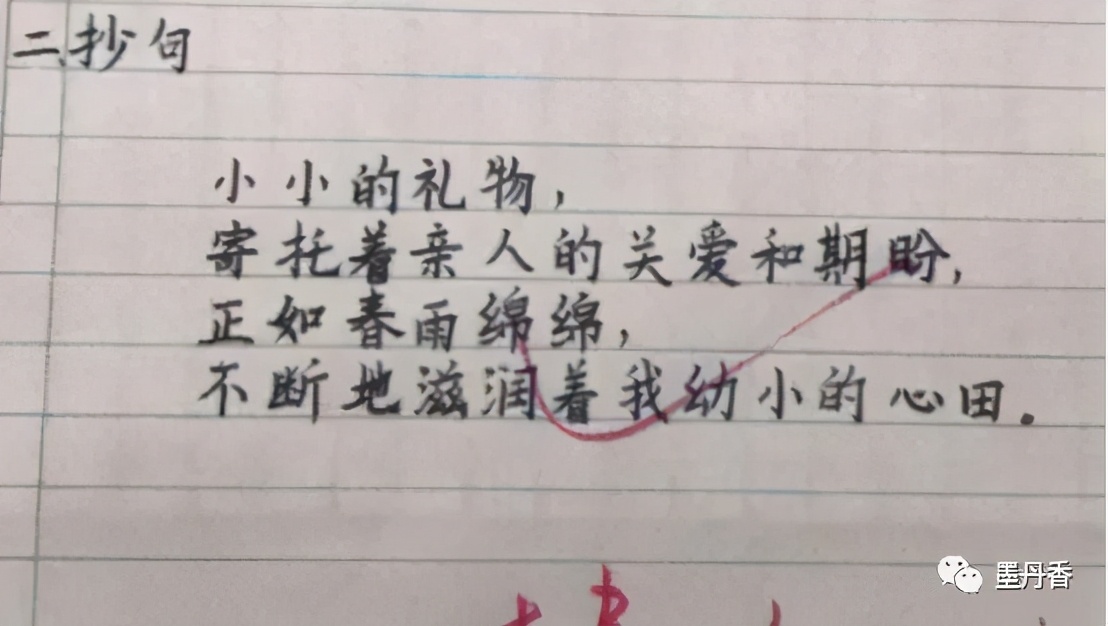 二、抄句
小小的礼物，
寄托着亲人的关爱和期盼，
正如春雨绵绵，
不断地滋润着我幼小的心田.
墨丹香